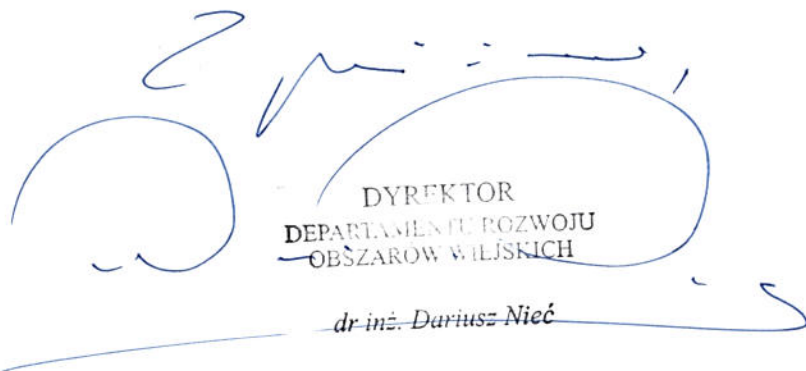 DYREKTOR
DEPARTAMENTU ROZWOJU
OBSZARÓW WIEJSKICH
dr inż. Dariusz Nieć